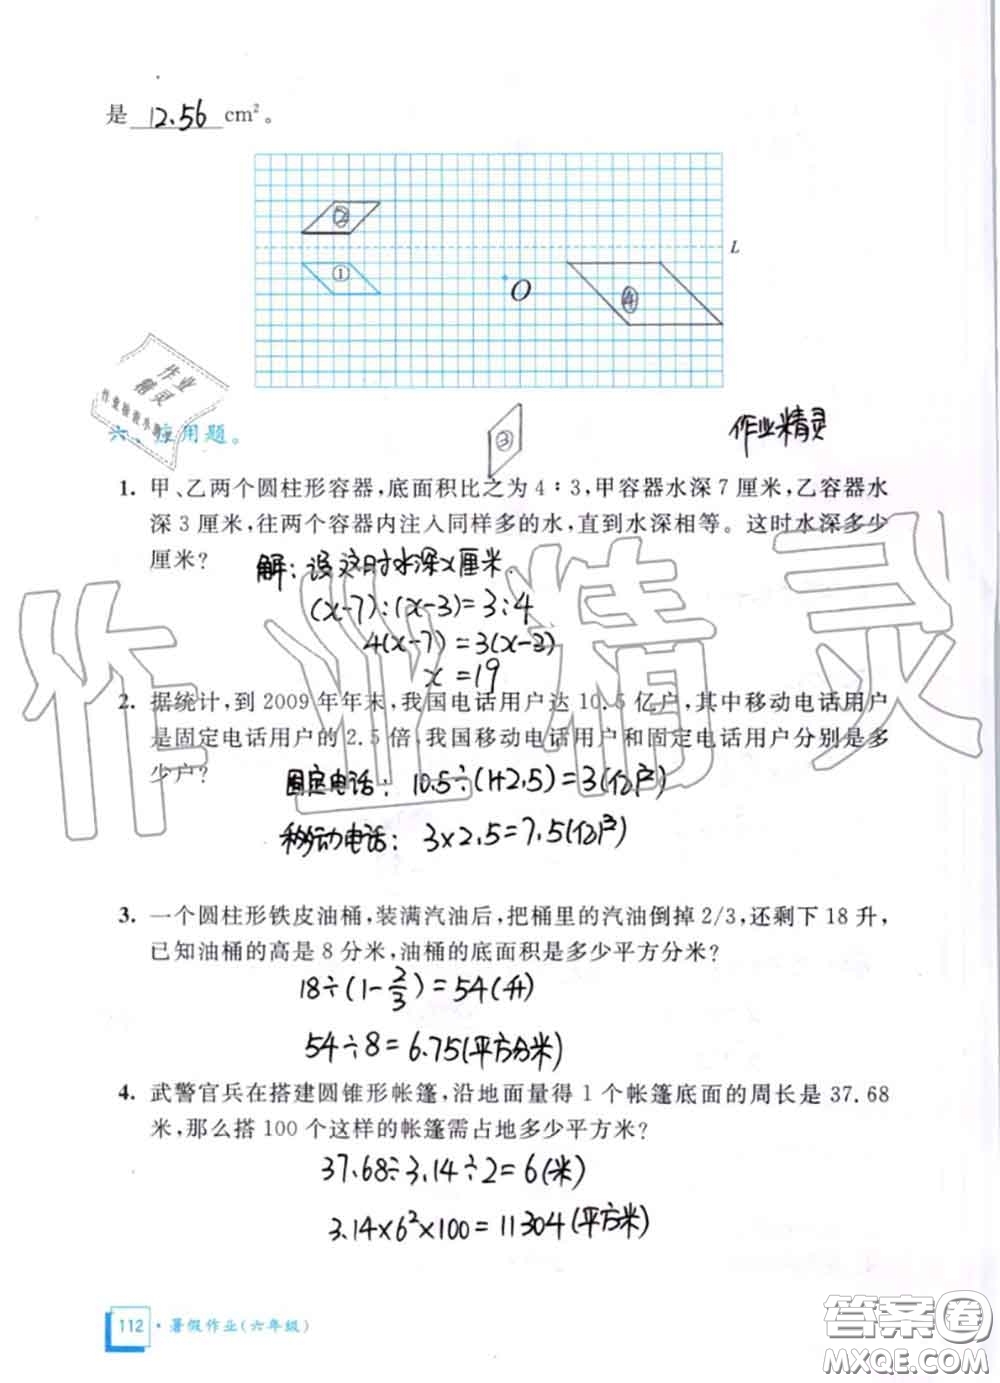 是 12.56 cm²。
②
L
①
O
④
作业
精灵
③
作业精灵
六、应用题。
1. 甲、乙两个圆柱形容器,底面积比之为 4∶3,甲容器水深 7 厘米,乙容器水
深 3 厘米,往两个容器内注入同样多的水,直到水深相等。这时水深多少
厘米?
解: 设这时水深x厘米.
(x-7):(x-3)=3:4
4(x-7)=3(x-3)
x=19
2. 据统计,到 2009 年年末,我国电话用户达 10.5 亿户,其中移动电话用户
是固定电话用户的 2.5 倍,我国移动电话用户和固定电话用户分别是多
少户?
固定电话: 10.5÷(1+2.5)=3(亿户)
移动电话: 3×2.5=7.5(亿户)
3. 一个圆柱形铁皮油桶,装满汽油后,把桶里的汽油倒掉 2/3,还剩下 18 升,
已知油桶的高是 8 分米,油桶的底面积是多少平方分米?
18÷(1-2/3)=54(升)
54÷8=6.75(平方分米)
4. 武警官兵在搭建圆锥形帐篷,沿地面量得 1 个帐篷底面的周长是 37.68
米,那么搭 100 个这样的帐篷需占地多少平方米?
37.68÷3.14÷2=6(米)
3.14×6²×100=11304(平方米)
作业精灵
112 · 暑假作业(六年级)
答案圈
MXQE.COM